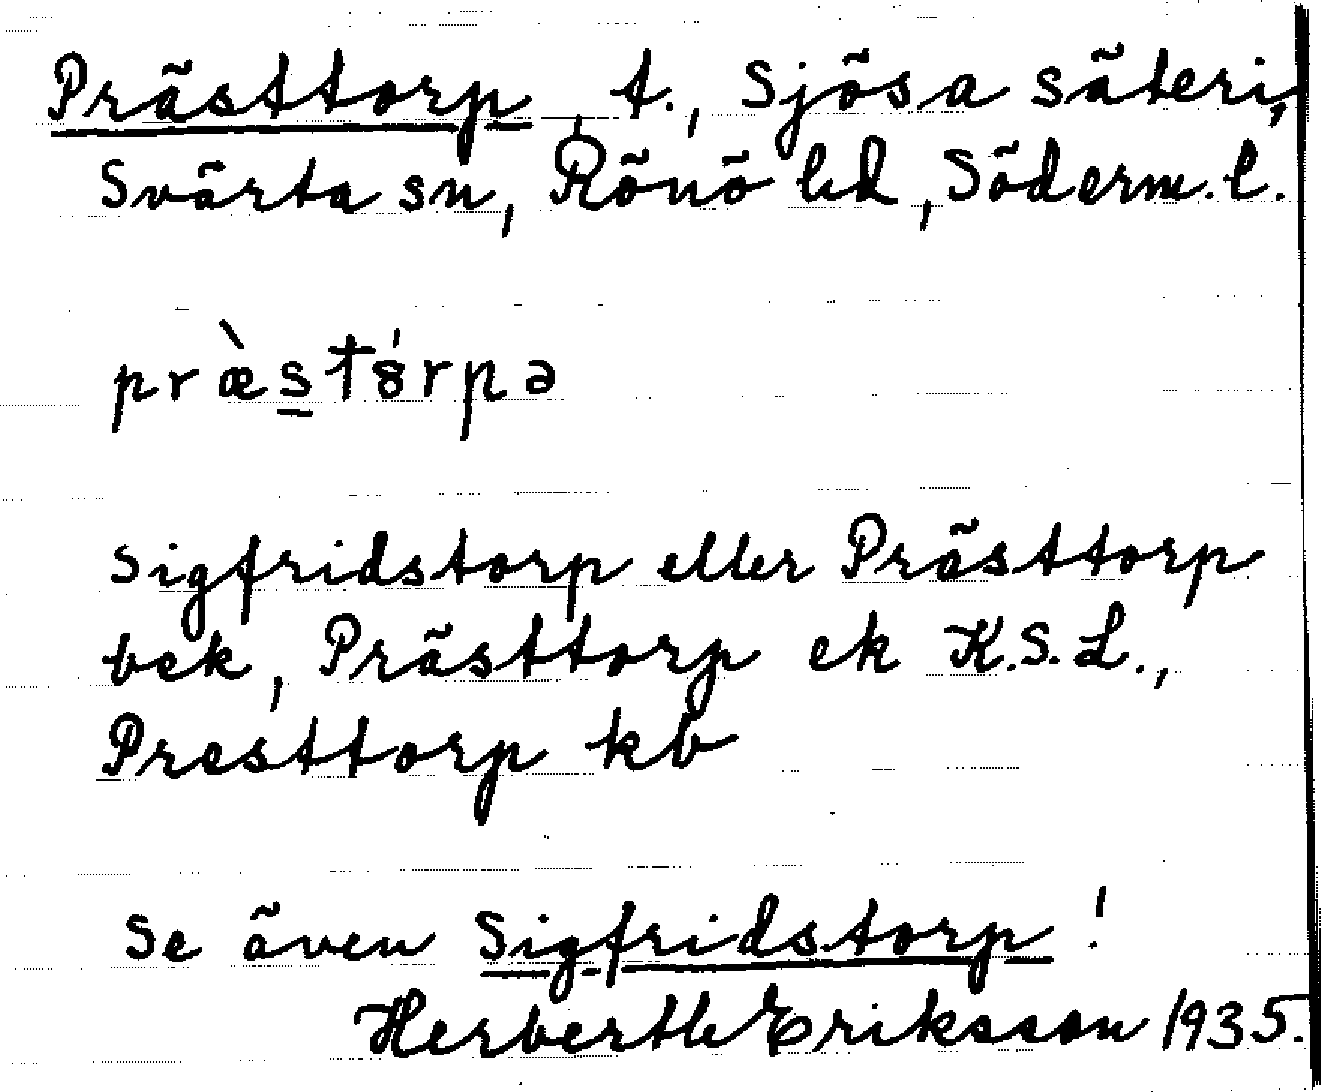 Prästtorp, t., Sjösa säteri,
Svärta sn, Rönö hd, Söderm. l.
præ̀stȣ́rpə
Sigfridstorp eller Prästtorp
bek, Prästtorp ek K.S.L.,
Presttorp kb
Se även Sigfridstorp!
Eriksson 1935.